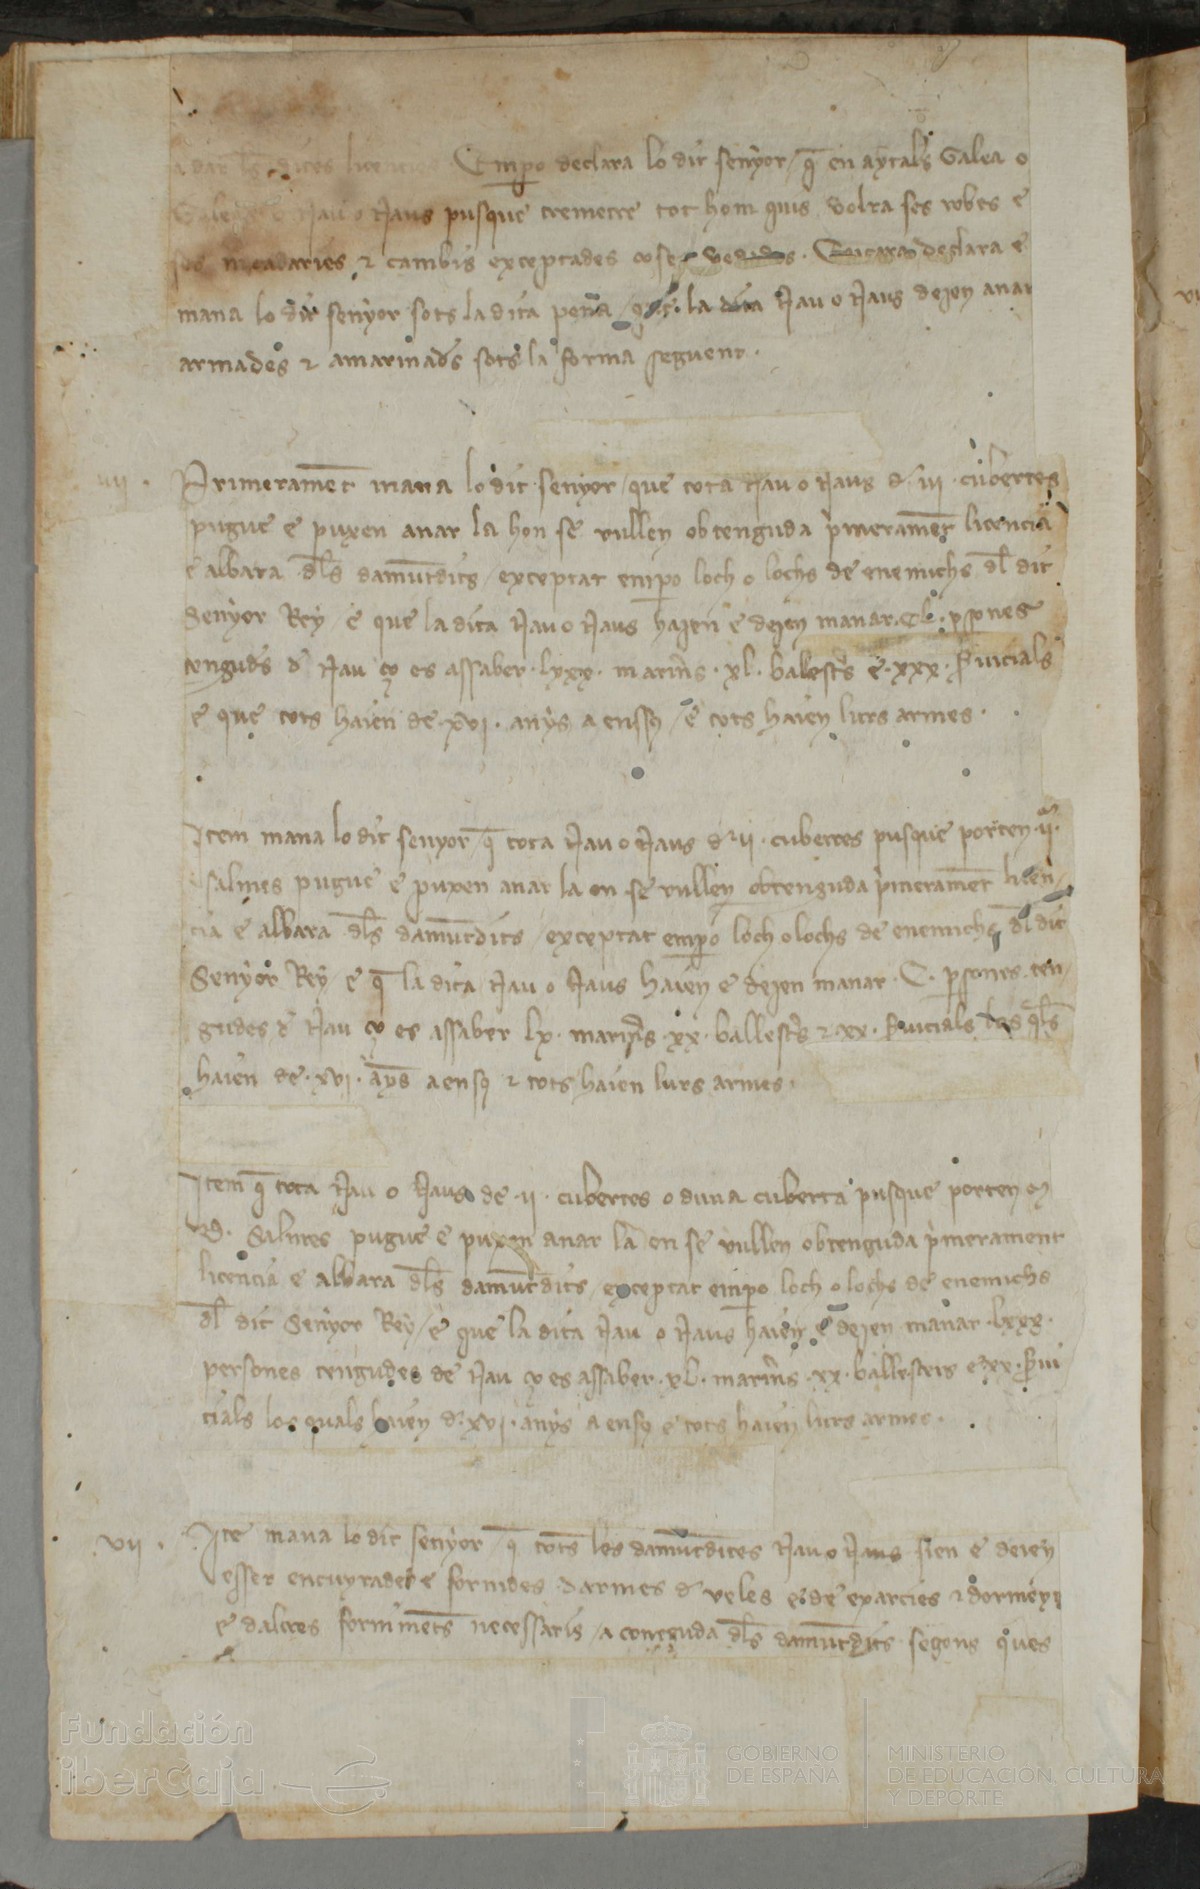 a dar les dites licencies Empo declara lo dit senyor / q en aytals Galea o
Galees e Nau o Naus pusque trametre tot hom quis volra ses robes e
ses mcadaries & cambis exceptades coses vedades. Encara declara e
mana lo dit senyor sots la dita pena / q la dita Nau o Naus dejen anar
armades & amarinads sots la forma seguent.
vii. Primerament mana lo dit senyor / que tota Nau o Naus d iii. cubertes
pugue e puxen anar la hon se vullen obtenguda pmerament licencia
e albara dls damutdits / exceptat empo loch o lochs de enemichs dl dit
Senyor Rey / e que la dita Nau o Naus hajen e dejen manar. CL. psones
tenguds d Nau ço es assaber. lxxx. marins. xl. balests e. xxx. Suicials
e que tots haien de. xvi. anys a ensus / e tots haien lurs armes.
Item mana lo dit senyor q tota Nau o Naus d ii. cubertes pusque porten. ii.
salmes pugue e puxen anar la on se vullen obtenguda pmerament licen/
cia e albara dls damutdits / exceptat empo loch o lochs de enemichs dl dit
Senyor Rey e q la dita Nau o Naus haien e dejen manar. C. psones ten/
gudes d Nau ço es assaber lx. marins. xx. ballests & xx. Suicials los qls
haien de. xvi. ays a ensus & tots haien lurs armes.
Item q tota Nau o Naus de. ii. cubertes o duna cuberta pusque porten
D. Salmes pugue e puxen anar la on se vullen obtenguda pmerament
licencia e albara dls damutdits / exceptat empo loch o lochs de enemichs
dl dit Senyor Rey / e que la dita Nau o Naus haien e dejen manar. lxxx.
persones tengudes de Nau ço es assaber. xl. marins. xx. ballesters e xx. Sui
cials los quals haien d. xvi. anys a ensus e tots haien lurs armes.
vii. Ite mana lo dit senyor / q tots les damutdites Nau o Naus sien e deien
esser encuyrades e fornides darmes d veles e de exarcies & dormeys
e daltres forniments necessaris / a coneguda dls damutdits segons ques
Fundación
iberCaja
GOBIERNO
DE ESPAÑA
MINISTERIO
DE EDUCACIÓN, CULTURA
Y DEPORTE